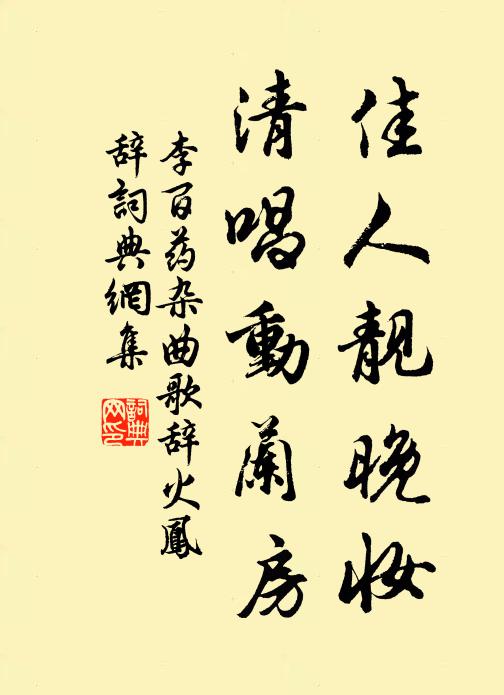 佳人靓晚妆
清唱動蘭房
李百药杂曲歌辞火鳳
辞詞典網集
詞典
网印